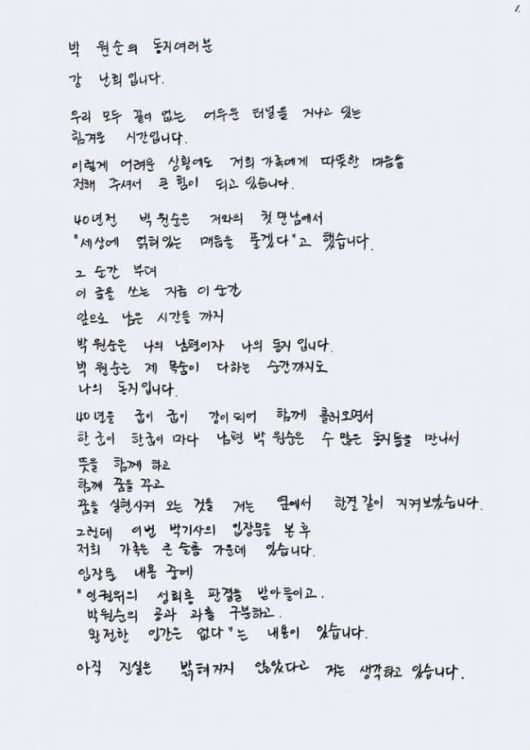 1.
박 원순의 동지여러분
강 난희입니다.
우리 모두 끝이 없는 어두운 터널을 지나고 있는
힘겨운 시간입니다.
이렇게 어려운 상황에도 저희 가족에게 따뜻한 마음을
전해 주셔서 큰 힘이 되고 있습니다.
40년전 박원순은 저와의 첫 만남에서
"세상에 얽혀있는 매듭을 풀겠다"고 했습니다.
그 순간 부터
이 글을 쓰는 지금 이 순간
앞으로 남은 시간들 까지
박원순은 나의 남편이자 나의 동지 입니다.
박 원순은 제 목숨이 다하는 순간까지도
나의 동지입니다.
40년을 굽이 굽이 강이되어 함께 흘러오면서
한 굽이 한굽이 마다 남편 박 원순은 수 많은 동지들을 만나서
뜻을 함께 하고
함께 꿈을 꾸고
꿈을 실현시켜 오는 것을 저는 옆에서 한결 같이 지켜보았습니다.
그런데 이번 박기사의 입장문을 본 후
저희 가족은 큰 슬픔 가운데 있습니다.
입장문 내용 중에
"인권위의 성희롱 판결을 받아들이고.
박원순의 공과 과를 구분하고.
완전한 인간은 없다"는 내용이 있습니다.
아직 진실은 밝혀지지 않았다고 저는 생각하고 있습니다.